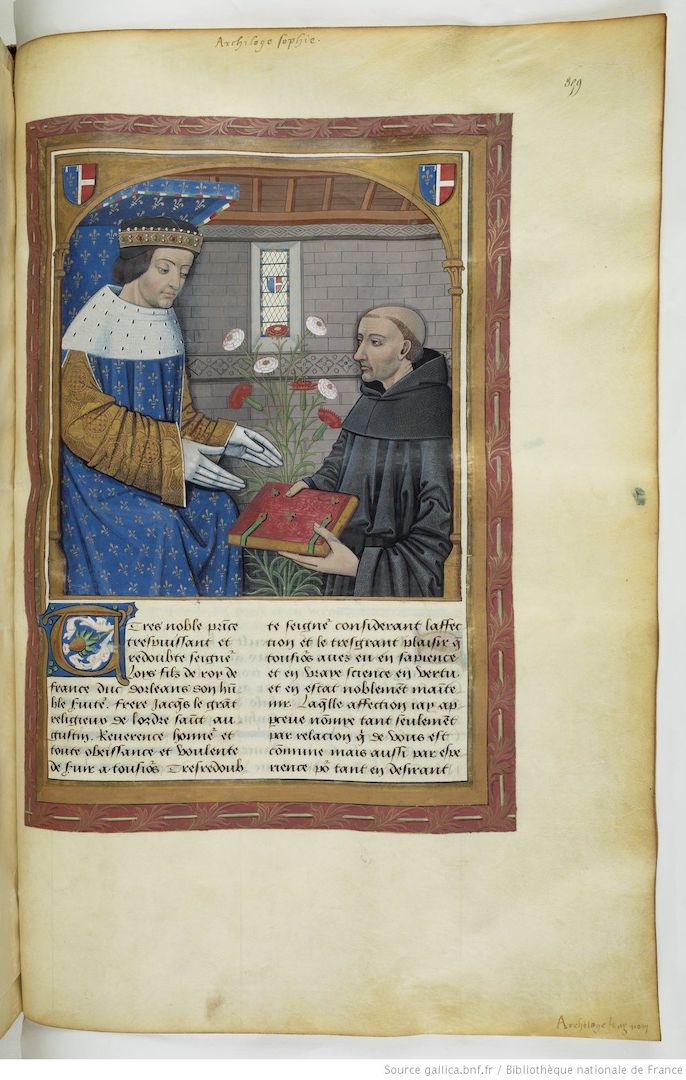 Archiloge sophie.
A Tres noble prīce
trespuissant et
redoubte seignr̄
loys filz de roy de
france duc dorleans son hū
ble s̄uite᷑. Frere Jacq̄s le grāt
religieux de lordre saīt au
gustin. Reuerence honne᷑ et
toute obeissance et voulente
de s̄uir a tousio᷑s Tresredoub
te seigne᷑ considerant laffec
tion et le tresgrant plaisir q̄
tousio᷑s auez eu en sapience
et en vraye science en vertu
et en estat noblemēt mainte
nir. Laq̄lle affection iay ap
perceue nōmie tant seulement
par relacion q̄ de vous est
cōmune mais aussi par expe
rience po᷑ tant en desirant
Archiloge
Source gallica.bnf.fr / Bibliothèque nationale de France